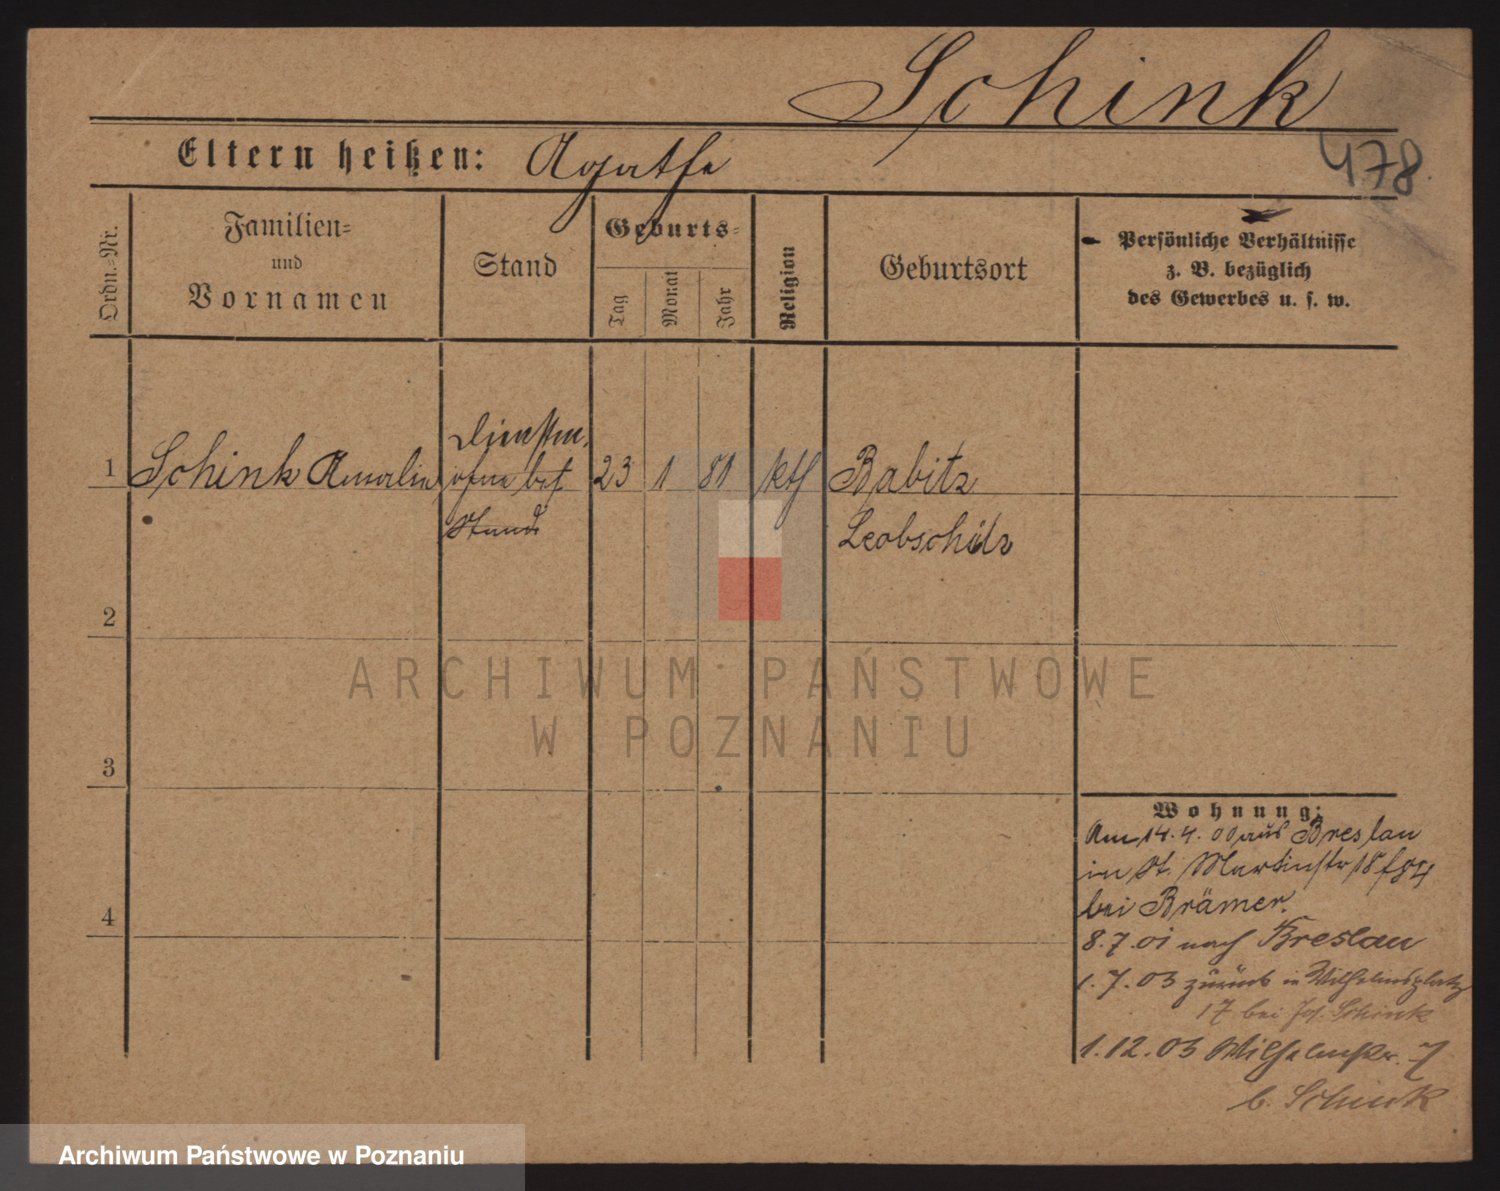 Schink
478
Eltern heißen: Agathe
Ordn.-Nr.
Familien-
und
Vornamen
Stand
Geburts-
Tag
Monat
Jahr
Religion
Geburtsort
Persönliche Verhältnisse
z. B. bezüglich
des Gewerbes u. s. w.
1 Schink Amalie 23 1 81 kth Babitz
ohne bes
Stand
Leobschütz
2
3
4
Wohnung:
Am 14.4.00 aus Breslau
in St. Martinstr 18
bei Brämer.
8.7.01 nach Breslau
1.7.03 zurück in Wilhelmsplatz
17 bei Jos. Schink
1.12.03 Wilhelmstr. 7
b. Schink
ARCHIWUM PAŃSTWOWE
W POZNANIU
Archiwum Państwowe w Poznaniu